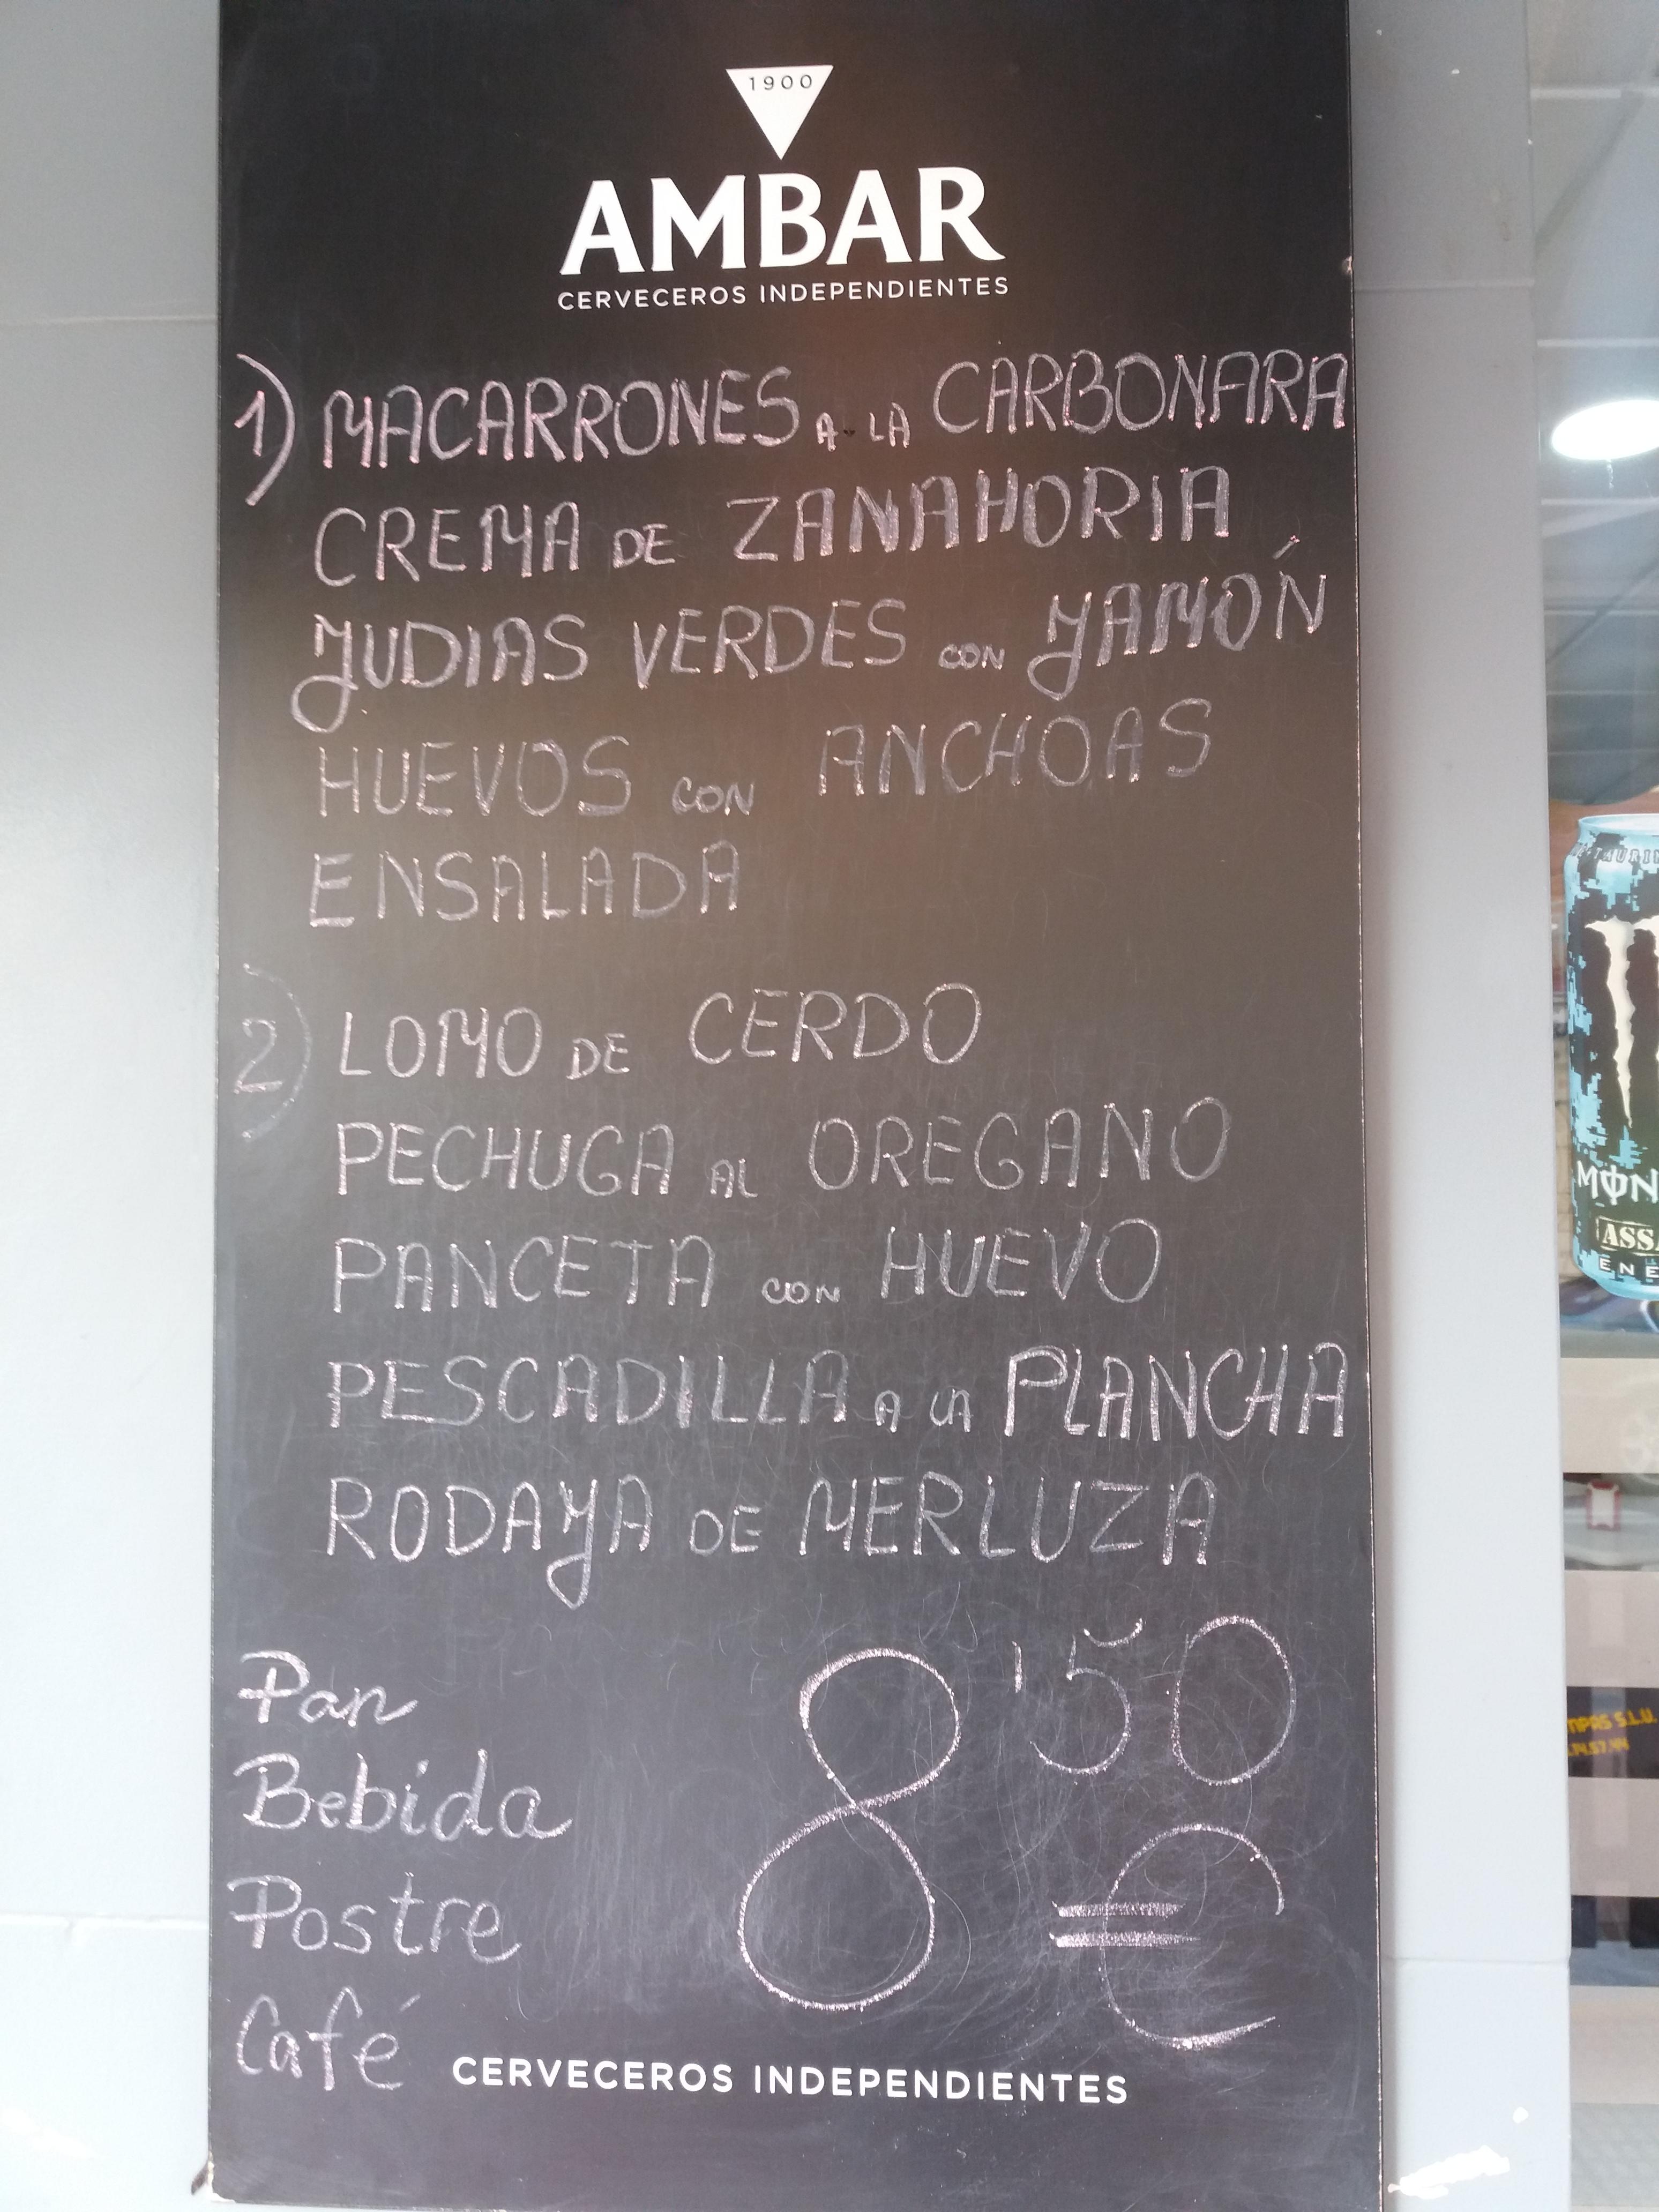 1900
AMBAR
CERVECEROS INDEPENDIENTES
1) MACARRONES A LA CARBONARA
CREMA DE ZANAHORIA
JUDIAS VERDES CON JAMÓN
HUEVOS CON ANCHOAS
ENSALADA
2) LOMO DE CERDO
PECHUGA AL OREGANO
PANCETA CON HUEVO
PESCADILLA A LA PLANCHA
RODAYA DE MERLUZA
Pan
Bebida
Postre
Café
8'50
€
CERVECEROS INDEPENDIENTES